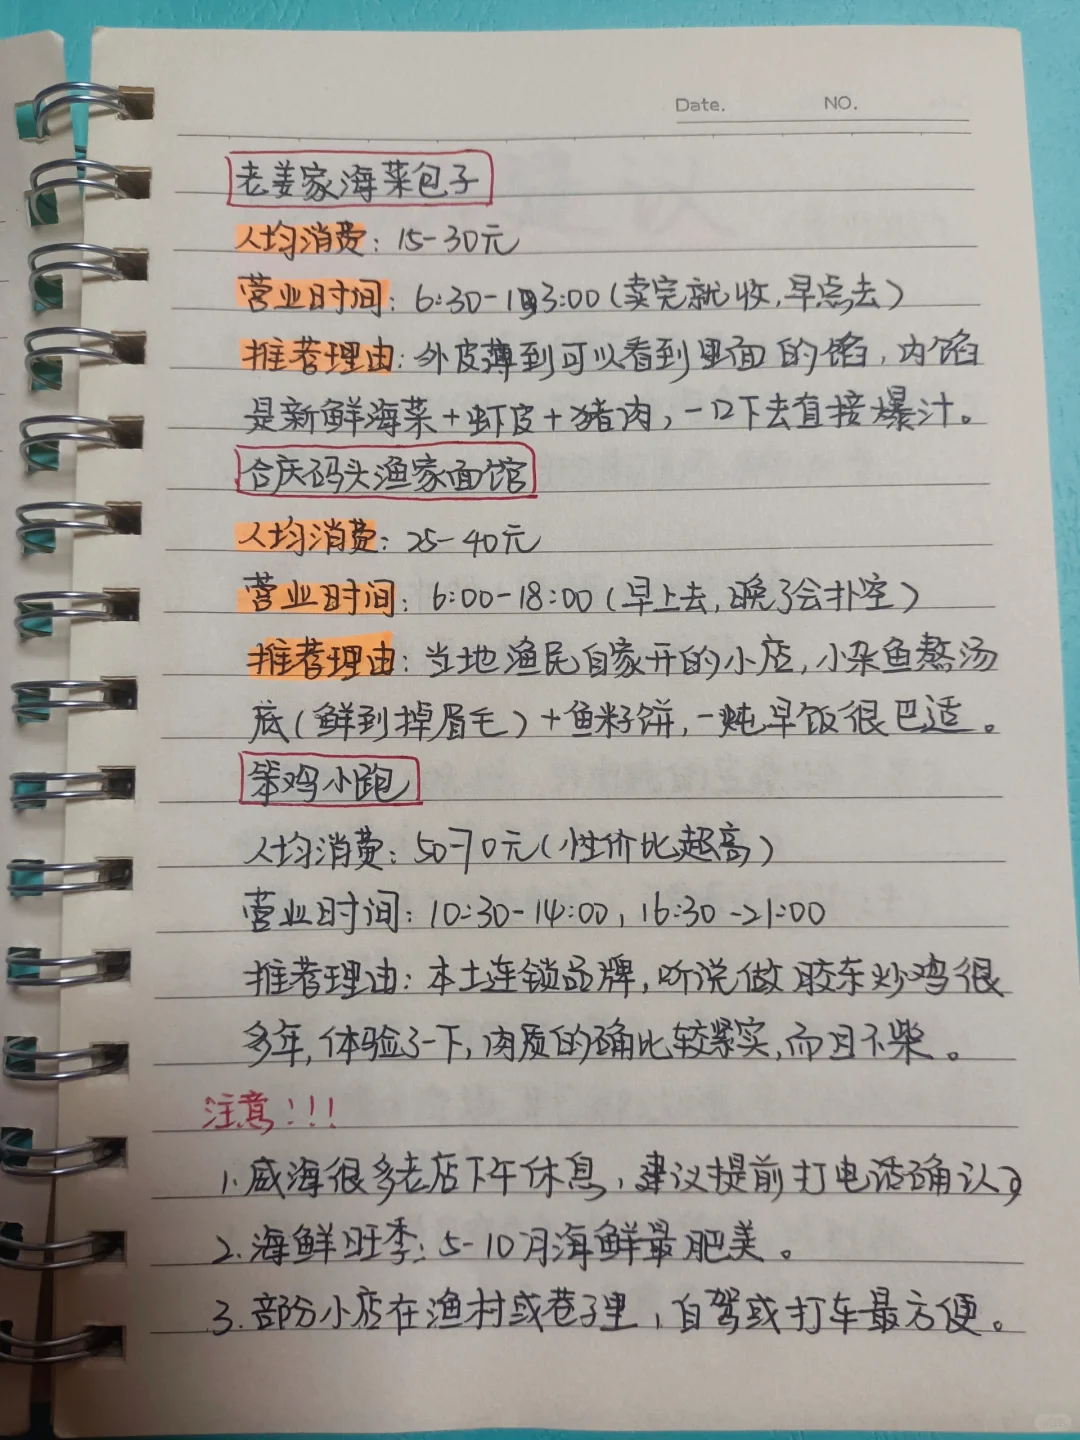 Date.
NO.
老姜家海菜包子
人均消费：15-30元
营业时间：6:30-13:00（卖完就收，早点去）
推荐理由：外皮薄到可以看到里面的馅，内馅
是新鲜海菜+虾皮+猪肉，一口下去直接爆汁。
合庆码头渔家面馆
人均消费：25-40元
营业时间：6:00-18:00（早上去，晚了会扑空）
推荐理由：当地渔民自家开的小店，小杂鱼熬汤
底（鲜到掉眉毛）+鱼籽饼，一炖早饭很巴适。
笨鸡小跑
人均消费：50-70元（性价比超高）
营业时间：10:30-14:00，16:30-21:00
推荐理由：本土连锁品牌，听说做胶东炒鸡很
多年，体验了一下，肉质的确比较紧实，而且不柴。
注意！！！
1.威海很多老店下午休息，建议提前打电话确认
2.海鲜旺季：5-10月海鲜最肥美。
3.部分小店在渔村或巷子里，自驾或打车最方便。